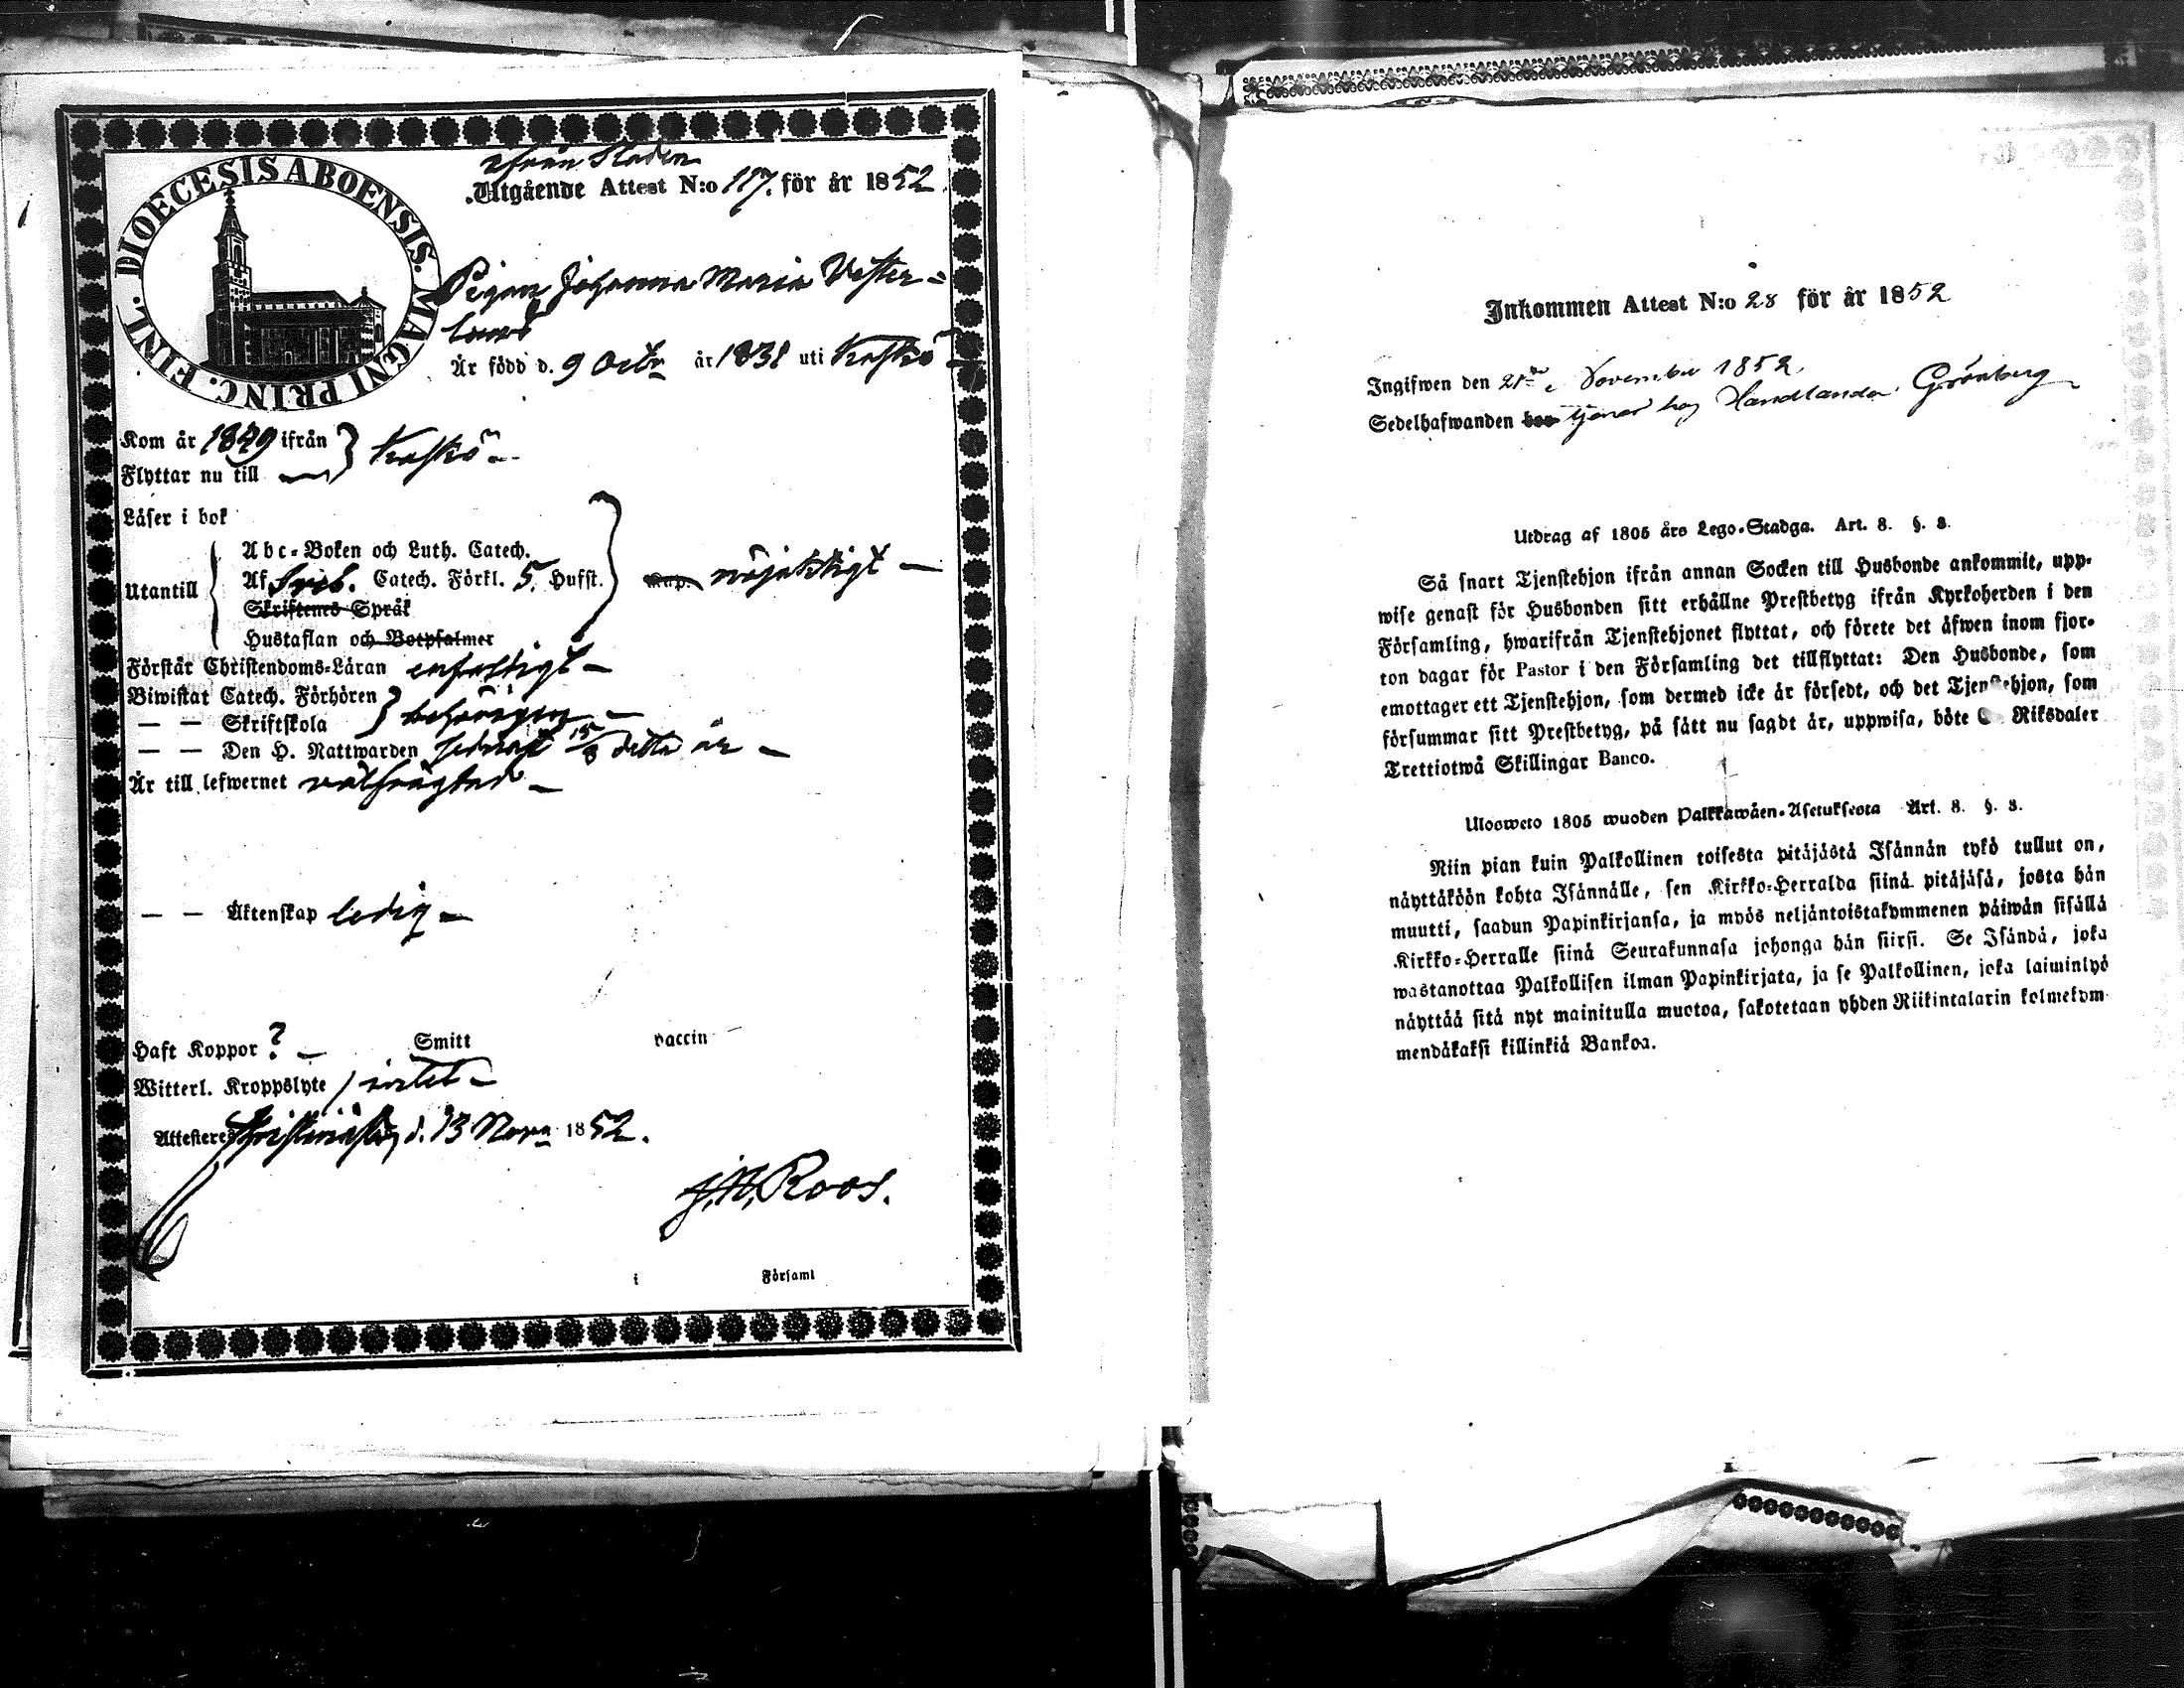 DIOECESIS ABOENSIS. MAGNI PRINC. FINL.
ifrån Staden
Utgående Attest N:o 117. för år 1852.
Pigan Johanna Maria Vester=
lund
Är född d. 9 Octbr år 1831 uti Kaskö
Kom år 1849 ifrån } Kaskö
Flyttar nu till
Läser i bok
Abc-Boken och Luth. Catech.
Utantill Af Sveb. Catech. Förkl. 5. Hufst. nöjaktigt —
Skriftenes Språk
Hustaflan och Botpsalmer
Förstår Christendoms-Läran enfaldigt —
Biwistat Catech. Förhören } behörigen —
— — Skriftskola
— — Den H. Nattwarden sednast 15/8 detta år —
Är till lefwernet välfrägdad —
— — Äktenskap ledig —
Haft Koppor ? — Smitt vaccin
Witterl. Kroppslyte intet —
Attesteres Christinæstad d. 13 Novr 1852.
J. M. Roos.
i Församl
Inkommen Attest N:o 28 för år 1852
Ingifwen den 21 November 1852.
Sedelhafwanden bor tjenar hos Handlanden Grönberg
Utdrag af 1805 års Lego-Stadga. Art. 8. §. 3.
Så snart Tjenstehjon ifrån annan Socken till Husbonde ankommit, upp-
wise genast för Husbonden sitt erhållne Prestbetyg ifrån Kyrkoherden i den
Församling, hwarifrån Tjenstehjonet flyttat, och förete det äfwen inom fjor-
ton dagar för Pastor i den Församling det tillflyttat: Den Husbonde, som
emottager ett Tjenstehjon, som dermed icke är försedt, och det Tjenstehjon, som
försummar sitt Prestbetyg, på sätt nu sagdt är, uppwisa, böte Riksdaler
Trettiotwå Skillingar Banco.
Ulosweto 1805 wuoden Palkkawäen-Asetuksesta Art. 8. §. 3.
Niin pian kuin Palkollinen toisesta pitäjästä Isännän tykö tullut on,
näyttäköön kohta Isännälle, sen Kirkko-Herralda siinä pitäjäsä, josta hän
muutti, saadun Papinkirjansa, ja myös neljäntoistakymmenen päiwän sisällä
Kirkko-Herralle siinä Seurakunnasa johonga hän siirsi. Se Isändä, joka
wastanottaa Palkollisen ilman Papinkirjata, ja se Palkollinen, joka laiminlyö
näyttää sitä nyt mainitulla muotoa, sakotetaan yhden Riikintalarin kolmekym-
mendäkaksi killinkiä Bankoa.